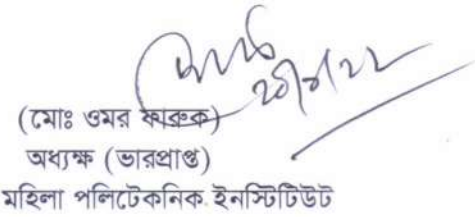 (মোঃ ওমর ফারুক)
অধ্যক্ষ (ভারপ্রাপ্ত)
মহিলা পলিটেকনিক ইনস্টিটিউট